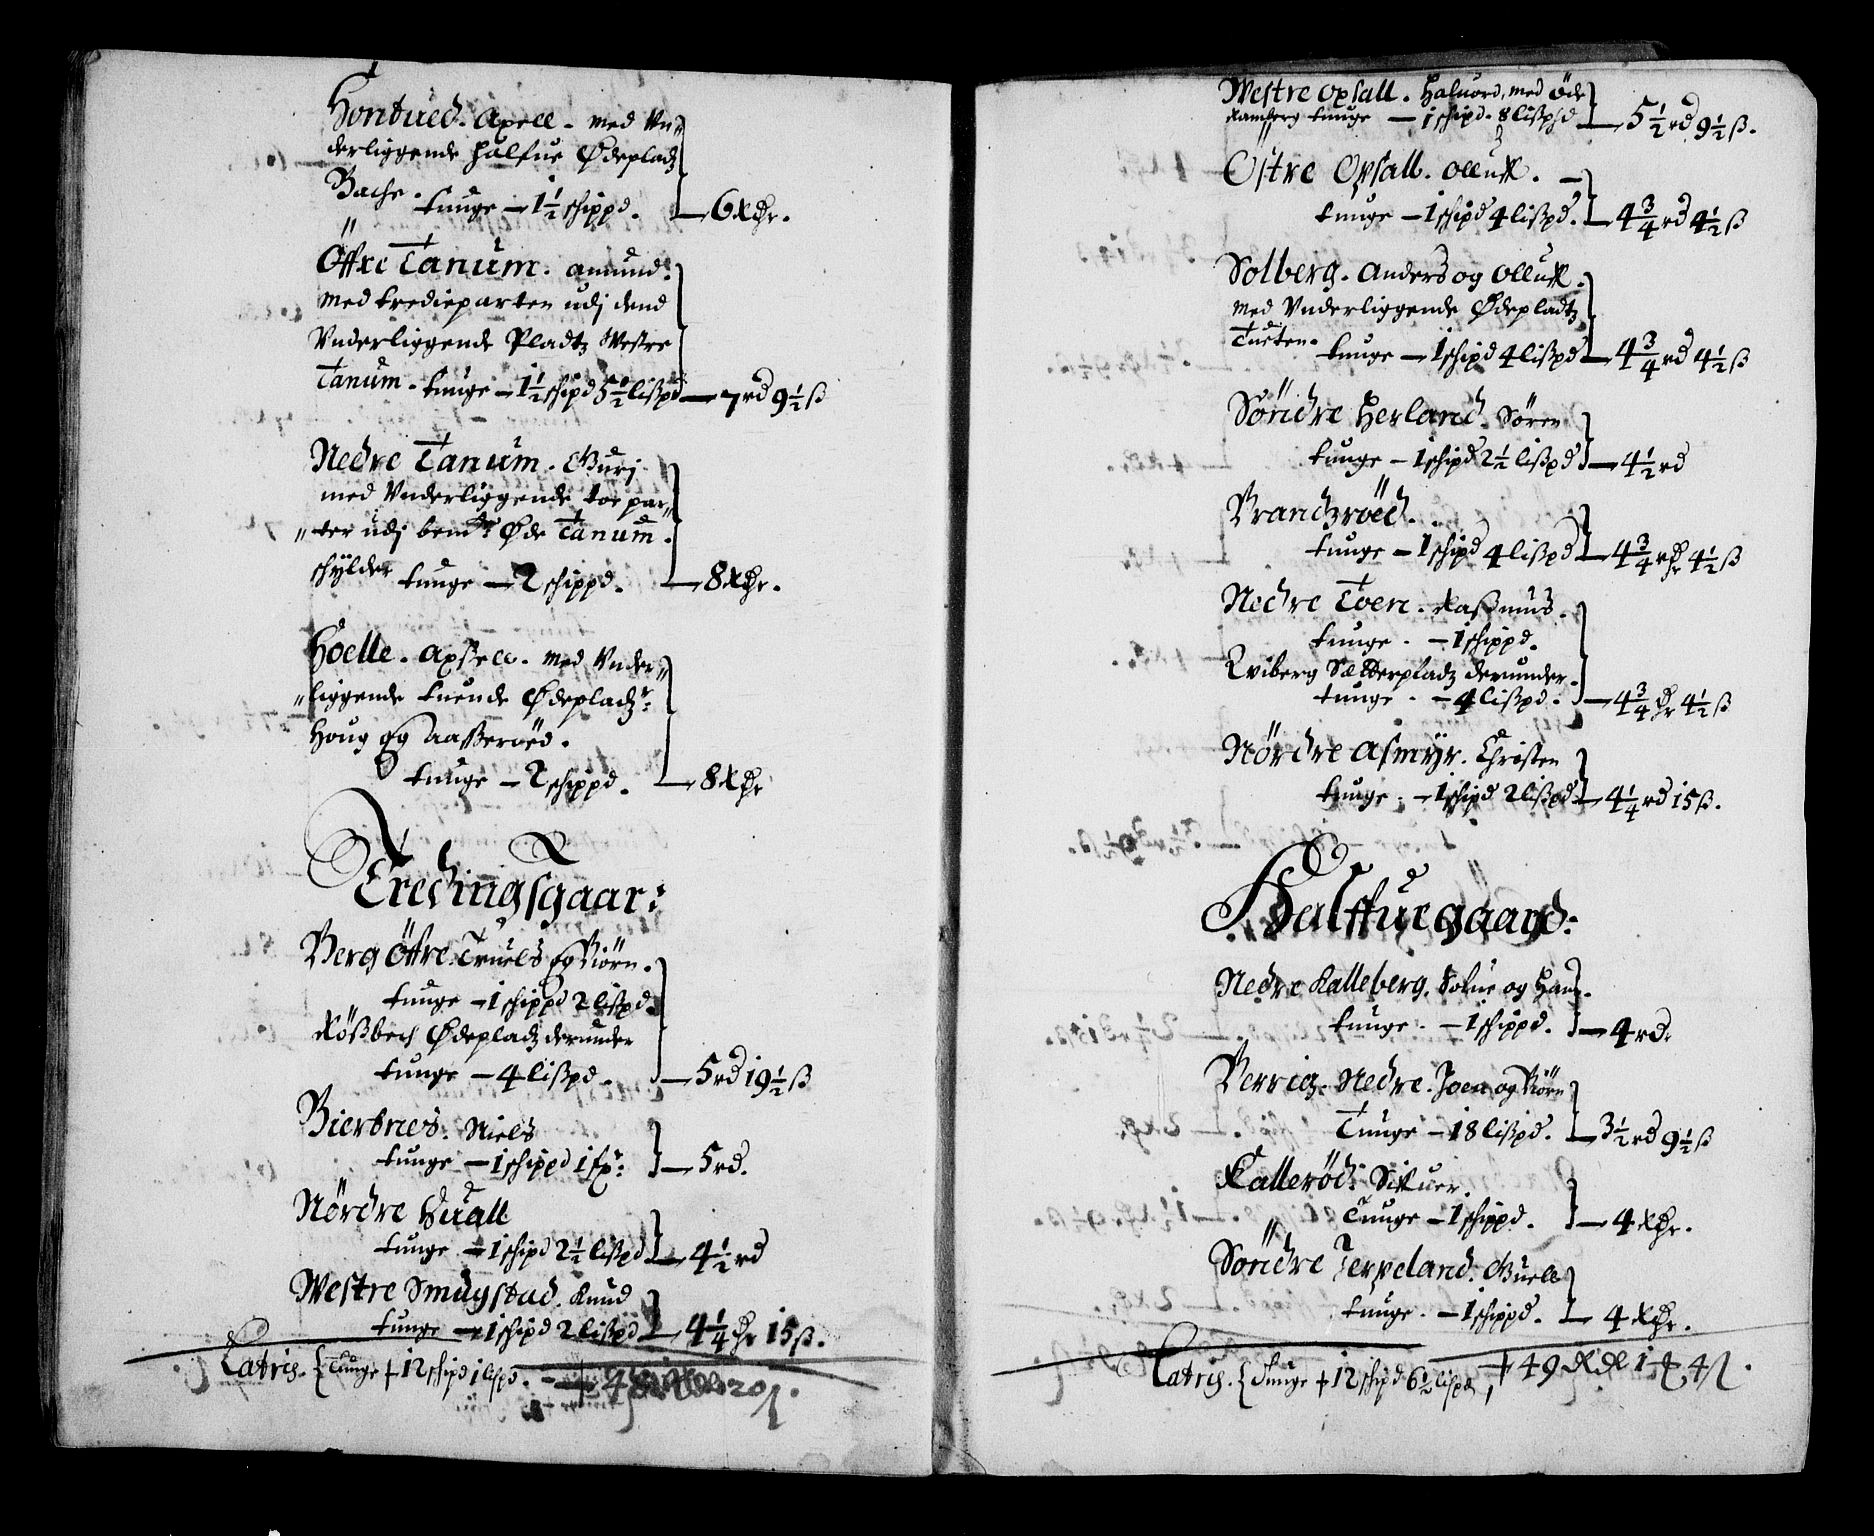 Hontued. Axell. med Vn„
derliggende halfue Ødepladtz
Bache. tunge — 1½ schippd. — 6 Rdr.
Öffre Tanum. Amund.
med tredieparten udj dend
Vnderliggende Pladtz Westre
Tanum. tunge — 1½ schipd 5½ lißpd — 7 rd 9½ ß
Nedre Tanum. Gurj
med Vnderliggende toe par„
„ter udj bemte Øde Tanum.
schylder tunge — 2 schippd. — 8 Rdr.
Hoelle. Axsell. med Vnder„
„liggende tuende Ødepladtzr:
Houg og Aasserøed.
tunge — 2 schippd. — 8 Rdr
Tredingsgaar:
Berg Öffre. Truels og Biörn.
tunge — 1 schippd 2 lißpd.
Rößbech Ødepladtz derunder
tunge — 4 lißpd. — 5 rd 19½ ß
Bierbnes. Niels
tunge — 1 schippd — 5 rd.
Nördre Huall
tunge — 1 schipd 2½ lißpd — 4½ rd
Westre Smugstad. Knud
tunge — 1 schipd 2 lißpd — 4¼ dr 15 ß.
Latris. { Tunge + 12 schipd 1 lispd.
Westre Opsall. Haluord, med Öde
Ramberg tunge — 1 schipd. 8 lißpd — 5½ rd 9½ ß.
Östre Opsall. Olluff. —
tunge — 1 schipd 4 lißpd. — 4¾ rd 4½ ß
Solberg. Anders og Olluff.
med Vnderliggende Ødepladtz
Tueten. tunge — 1 schipd 4 lißpd — 4¾ rd 4½ ß
Söndre Herland. Sören
tunge — 1 schipd 2½ lißpd — 4½ rd
Brandzröed.
tunge — 1 schipd 4 lißpd — 4¾ rdr 4½ ß
Nedre Toen. Raßmus.
tunge. — 1 schippd.
Kviberg Sætterpladtz derunder.
tunge. — 4 lißpd. — 4¾ dr 4½ ß
Nördre Asmyr. Christen
tunge. — 1 schipd 2 lißpd — 4¼ rd 15 ß.
Halffuegaard:
Nedre Kalleberg. Solue og Hans.
tunge. — 1 schippd. — 4 rd.
Berrig. Nedre. Joen og Biörn
Tunge — 18 lißpd. — 3½ rd 9½ ß
Kalleröd: Sifuer.
Tunge — 1 schippd. — 4 Rdr.
Söndre Jerpeland.
tunge. — 1 schippd. — 4 Rdr.
Latris. { Tunge + 12 schipd 6½ lispd, + 49 Rdl 1 4 ß.